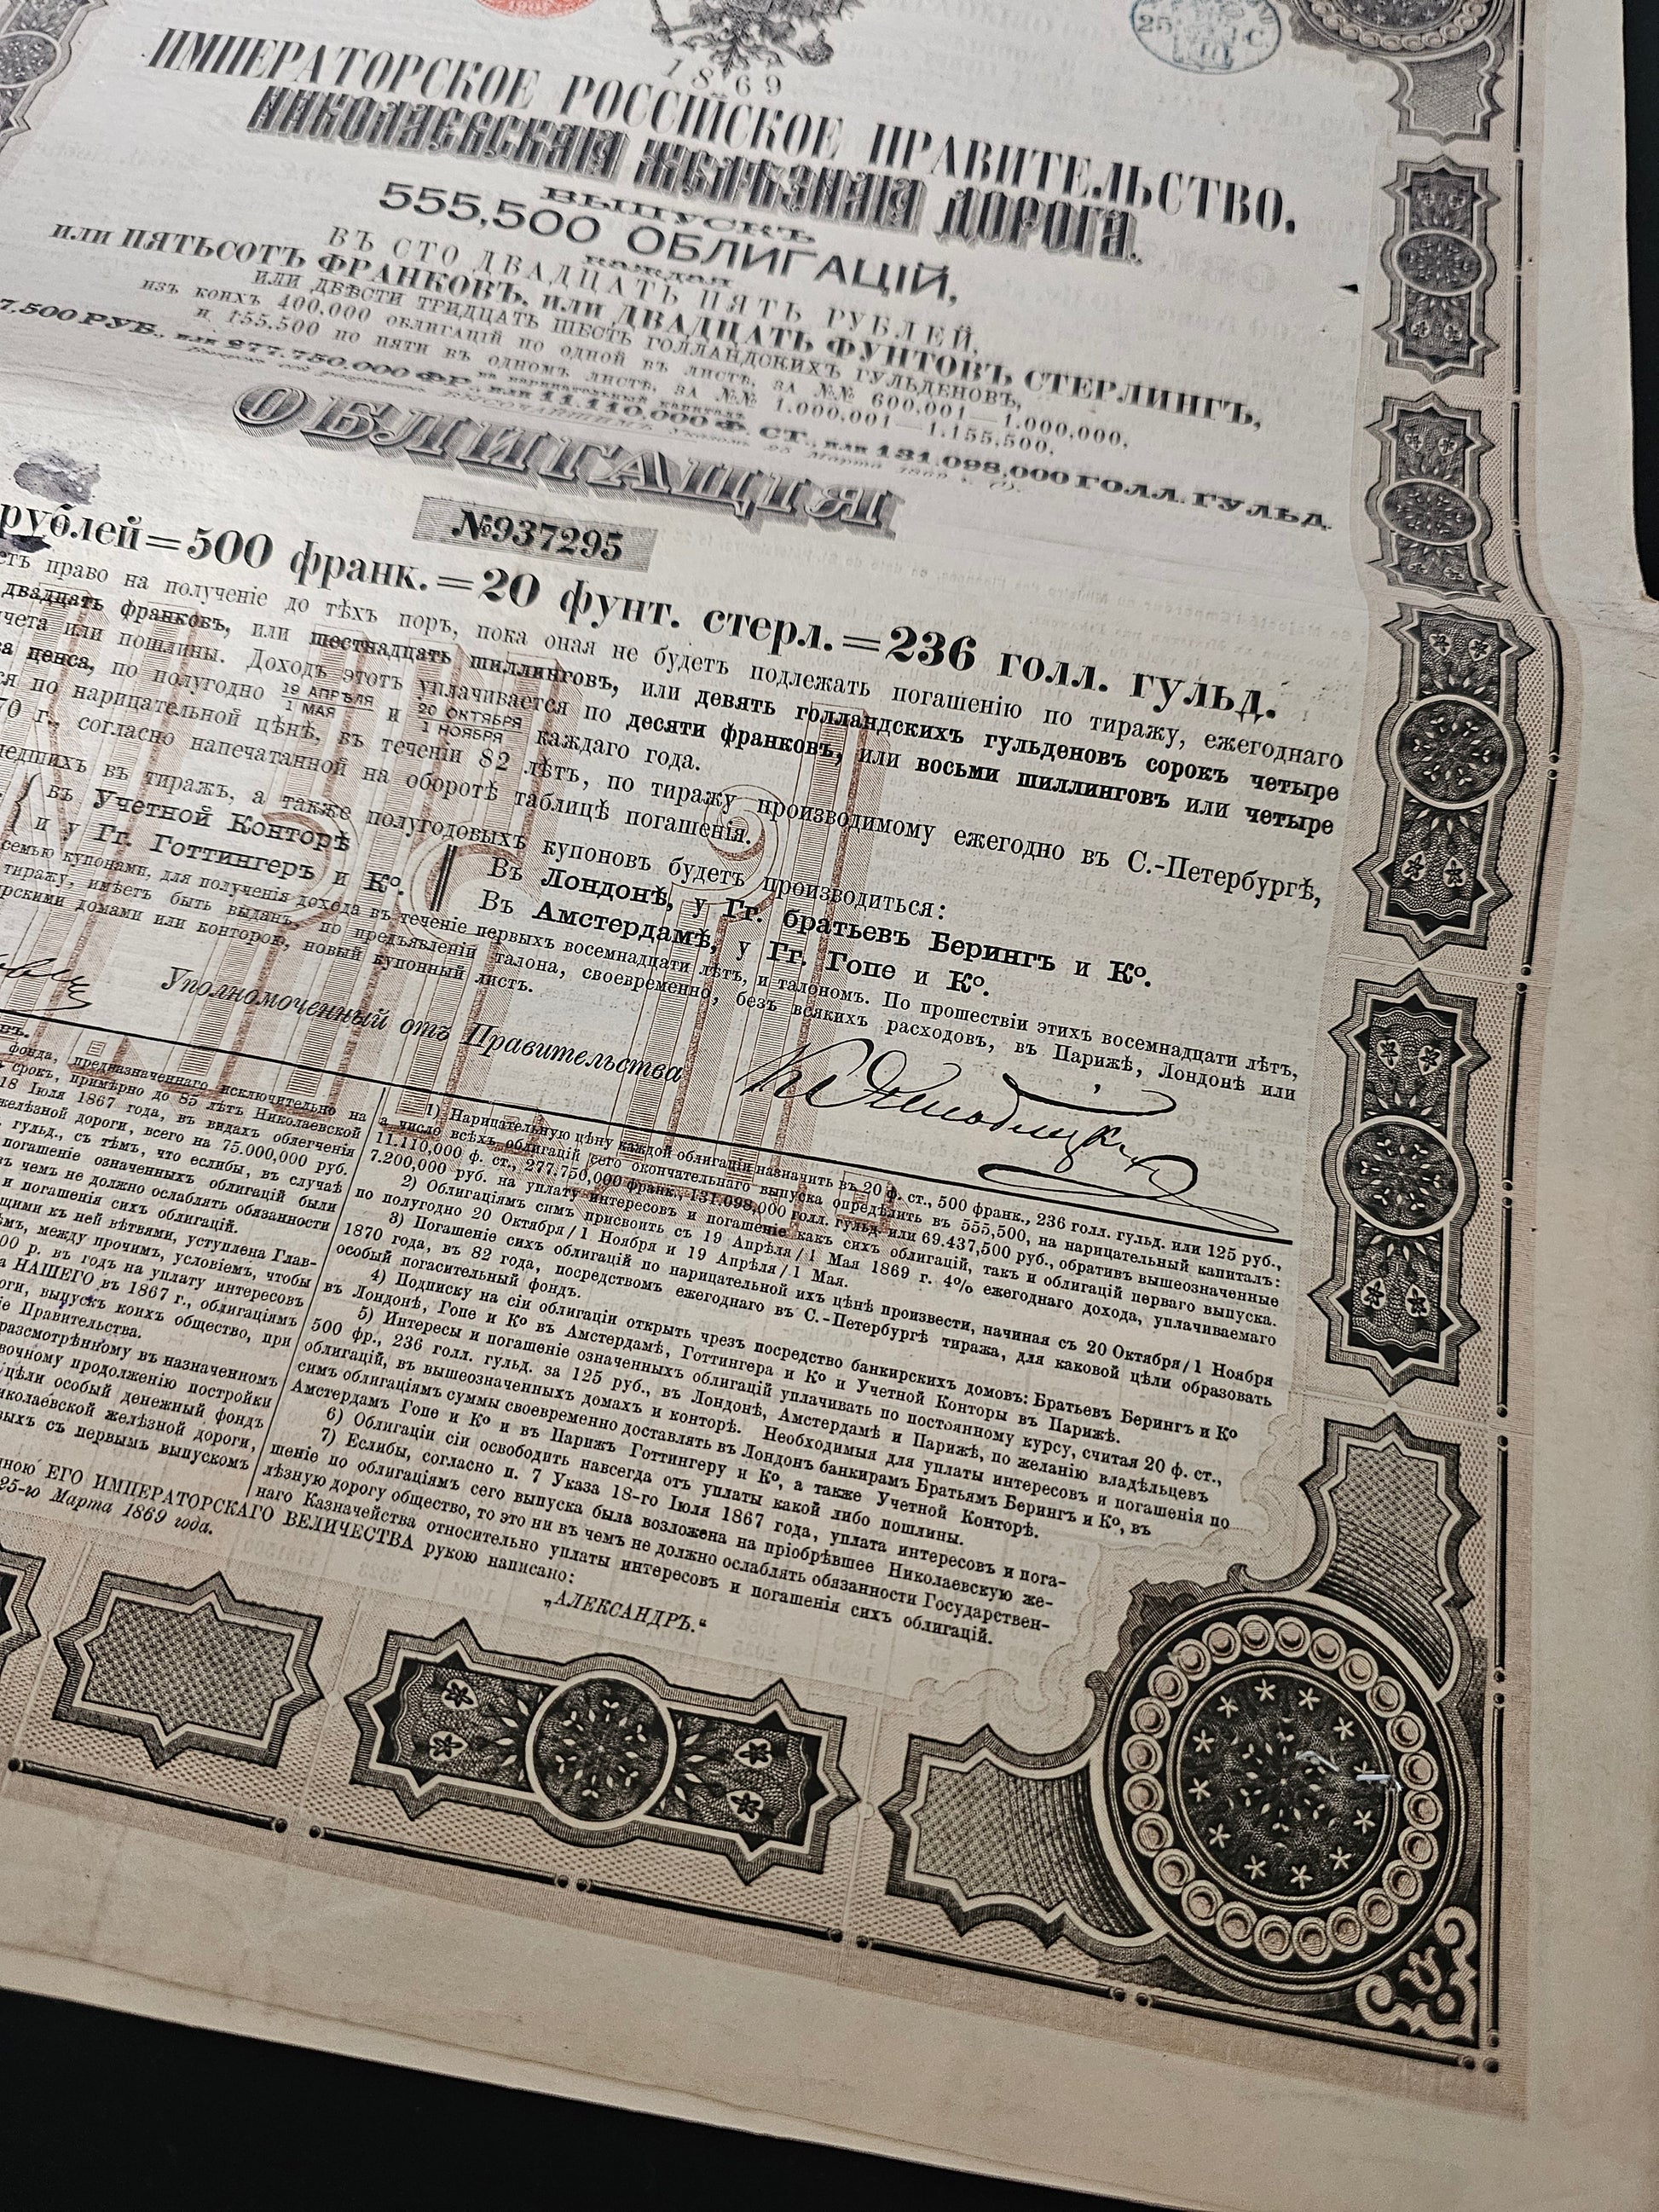 1869
ИМПЕРАТОРСКОЕ РОССІЙСКОЕ ПРАВИТЕЛЬСТВО.
НИКОЛАЕВСКАЯ ЖЕЛѢЗНАЯ ДОРОГА.
ВЫПУСКЪ
555,500 ОБЛИГАЦІЙ,
каждая
ВЪ СТО ДВАДЦАТЬ ПЯТЬ РУБЛЕЙ,
или ПЯТЬСОТЪ ФРАНКОВЪ, или ДВАДЦАТЬ ФУНТОВЪ СТЕРЛИНГЪ,
ИЛИ ДВѢСТИ ТРИДЦАТЬ ШЕСТЬ ГОЛЛАНДСКИХЪ ГУЛЬДЕНОВЪ,
изъ коихъ 400.000 облигацій по одной въ листѣ, за №№ 600,001—1.000,000,
и 155,500 по пяти въ одномъ листѣ, за №№ 1.000,001—1.155,500,
на нарицательный капиталъ
7,500 РУБ., или 277.750,000 ФР., или 11.110,000 Ф. СТ., или 131.098,000 ГОЛЛ. ГУЛЬД.
ОБЛИГАЦІЯ
№937295
рублей=500 франк.=20 фунт. стерл.=236 голл. гульд.
право на полученіе до тѣхъ поръ, пока оная не будетъ подлежать погашенію по тиражу, ежегоднаго
двадцать франковъ, или шестнадцать шиллинговъ, или девять голландскихъ гульденовъ сорокъ четыре
или пошлины. Доходъ этотъ уплачивается по десяти франковъ, или восьми шиллинговъ или четыре
ценса, по полугодно 19 АПРѢЛЯ / 1 МАЯ и 20 ОКТЯБРЯ / 1 НОЯБРЯ каждаго года.
по нарицательной цѣнѣ, въ теченіи 82 лѣтъ, по тиражу производимому ежегодно въ С.-Петербургѣ,
70 г., согласно напечатанной на оборотѣ таблицѣ погашенія.
въ тиражъ, а также полугодовыхъ купоновъ будетъ производиться:
въ Учетной Конторѣ
и у Гг. Готтингеръ и Ко.
Въ Лондонѣ, у Гг. братьевъ Берингъ и Ко.
Въ Амстердамѣ, у Гг. Гопе и Ко.
семью купонами, для полученія дохода въ теченіе первыхъ восемнадцати лѣтъ, и талономъ. По прошествіи этихъ восемнадцати лѣтъ,
тиражу, имѣетъ быть выданъ, по предъявленіи талона, своевременно, безъ всякихъ расходовъ, въ Парижѣ, Лондонѣ или
домами или конторою, новый купонный листъ.
Уполномоченный отъ Правительства
фонда, предназначеннаго исключительно на
срокъ, примѣрно до 85 лѣтъ Николаевской
18 Іюля 1867 года, въ видахъ облегченія
желѣзной дороги, всего на 75.000,000 руб.
гульд., съ тѣмъ, что еслибы, въ случаѣ
погашеніе означенныхъ облигацій были
въ чемъ не должно ослаблять обязанности
и погашенія сихъ облигацій.
къ ней вѣтвями, уступлена Глав-
между прочимъ, условіемъ, чтобы
р. въ годъ на уплату интересовъ
НАШЕГО въ 1867 г., облигаціямъ
выпускъ коихъ общество, при
Правительства.
разсмотрѣнному въ назначенномъ
продолженію постройки
цѣли особый денежный фондъ
желѣзной дороги,
съ первымъ выпускомъ
1) Нарицательную цѣну каждой облигаціи назначить въ 20 ф. ст., 500 франк., 236 голл. гульд. или 125 руб.,
а число всѣхъ облигацій сего окончательнаго выпуска опредѣлить въ 555,500, на нарицательный капиталъ:
11.110,000 ф. ст., 277.750,000 франк., 131.098,000 голл. гульд. или 69.437,500 руб., обративъ вышеозначенные
7.200,000 руб. на уплату интересовъ и погашеніе какъ сихъ облигацій, такъ и облигацій перваго выпуска.
2) Облигаціямъ симъ присвоить съ 19 Апрѣля/1 Мая 1869 г. 4% ежегоднаго дохода, уплачиваемаго
по полугодно 20 Октября/1 Ноября и 19 Апрѣля/1 Мая.
3) Погашеніе сихъ облигацій по нарицательной ихъ цѣнѣ произвести, начиная съ 20 Октября/1 Ноября
1870 года, въ 82 года, посредствомъ ежегоднаго въ С.-Петербургѣ тиража, для каковой цѣли образовать
особый погасительный фондъ.
4) Подписку на сіи облигаціи открыть чрезъ посредство банкирскихъ домовъ: Братьевъ Берингъ и Ко
въ Лондонѣ, Гопе и Ко въ Амстердамѣ, Готтингера и Ко и Учетной Конторы въ Парижѣ.
5) Интересы и погашеніе означенныхъ облигацій уплачивать по постоянному курсу, считая 20 ф. ст.,
500 фр., 236 голл. гульд. за 125 руб., въ Лондонѣ, Амстердамѣ и Парижѣ, по желанію владѣльцевъ
облигацій, въ вышеозначенныхъ домахъ и конторѣ. Необходимыя для уплаты интересовъ и погашенія по
симъ облигаціямъ суммы своевременно доставлять въ Лондонъ банкирамъ Братьямъ Берингъ и Ко, въ
Амстердамъ Гопе и Ко и въ Парижъ Готтингеру и Ко, а также Учетной Конторѣ.
6) Облигаціи сіи освободить навсегда отъ уплаты какой либо пошлины.
7) Еслибы, согласно п. 7 Указа 18-го Іюля 1867 года, уплата интересовъ и пога-
шеніе по облигаціямъ сего выпуска была возложена на пріобрѣвшее Николаевскую же-
лѣзную дорогу общество, то это ни въ чемъ не должно ослаблять обязанности Государствен-
наго Казначейства относительно уплаты интересовъ и погашенія сихъ облигацій.
ЕГО ИМПЕРАТОРСКАГО ВЕЛИЧЕСТВА рукою написано:
25-го Марта 1869 года.
„АЛЕКСАНДРЪ.“